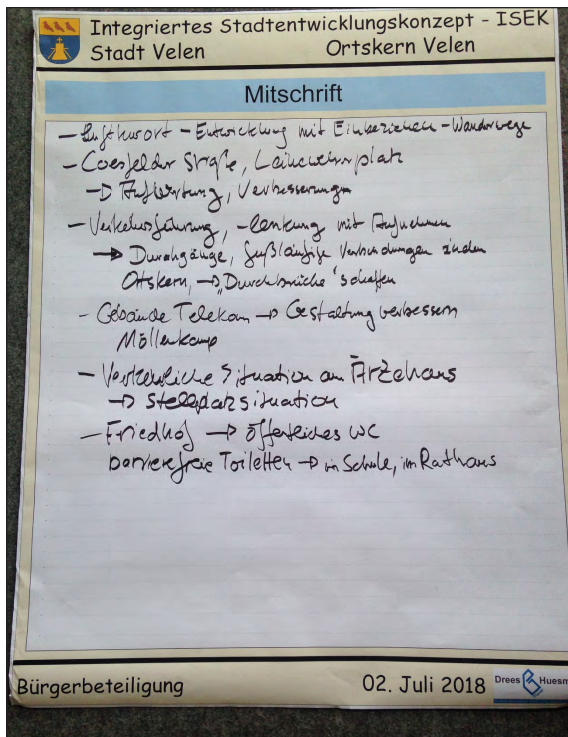 Integriertes Stadtentwicklungskonzept - ISEK
Stadt Velen Ortskern Velen
Mitschrift
- Luftkurort - Entwicklung mit Einbeziehen - Wanderwege
- Coesfelder Straße, Leineweberplatz
→ Aufwertung, Verbesserung
- Verkehrsführung, -lenkung mit Aufnehmen
→ Durchgänge, fußläufige Verbindungen in den
Ortskern, → „Durchbrüche“ schaffen
- Gebäude Telekom → Gestaltung verbessern
Möllenkamp
- Verkehrliche Situation am Ärzehaus
→ Stellplatzsituation
- Friedhof → öffentliches WC
barrierefreie Toiletten → in Schule, im Rathaus
Bürgerbeteiligung
02. Juli 2018
Drees
Huesm